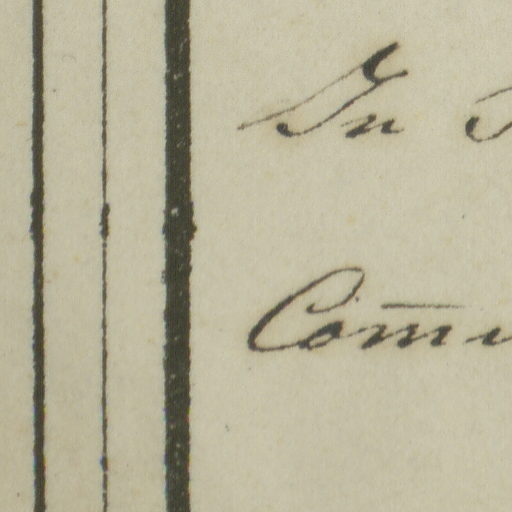 In
Com̅i